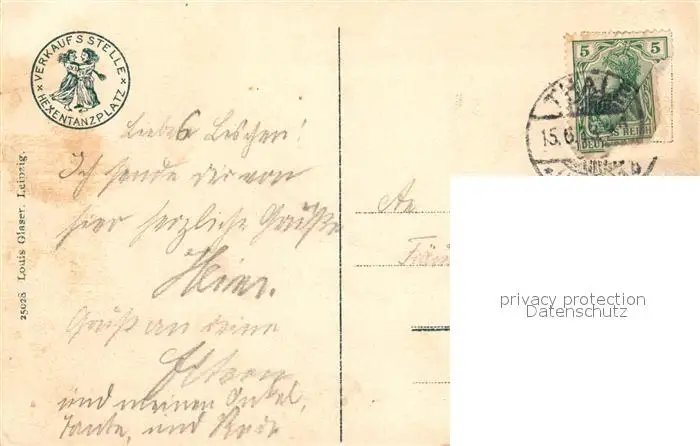 VERKAUFSSTELLE
× HEXENTANZPLATZ ×
25028 Louis Glaser, Leipzig.
Liebes Lieschen!
Ich sende dir von
hier herzliche Grüße
Heinr.
Gruß an deine
Eltern
und meinen Onkel,
Tante, und
An
Fräul
5 5
DEUTSCHES REICH
THALE
15.6.
privacy protection
Datenschutz